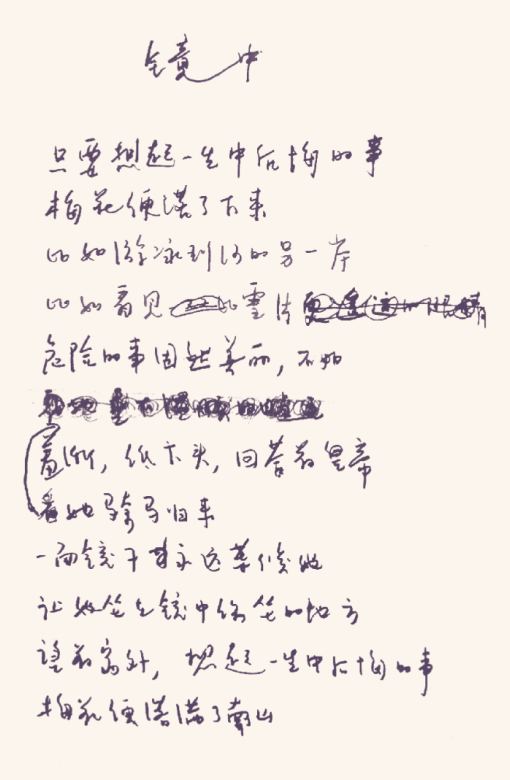 镜中
只要想起一生中后悔的事
梅花便落了下来
比如游泳到河的另一岸
比如看见比雪片
危险的事固然美丽，不如
羞惭，低下头，回答着皇帝
看她骑马归来
一面镜子永远等候她
让她坐在镜中你坐的地方
望着窗外，想起一生中后悔的事
梅花便落满了南山